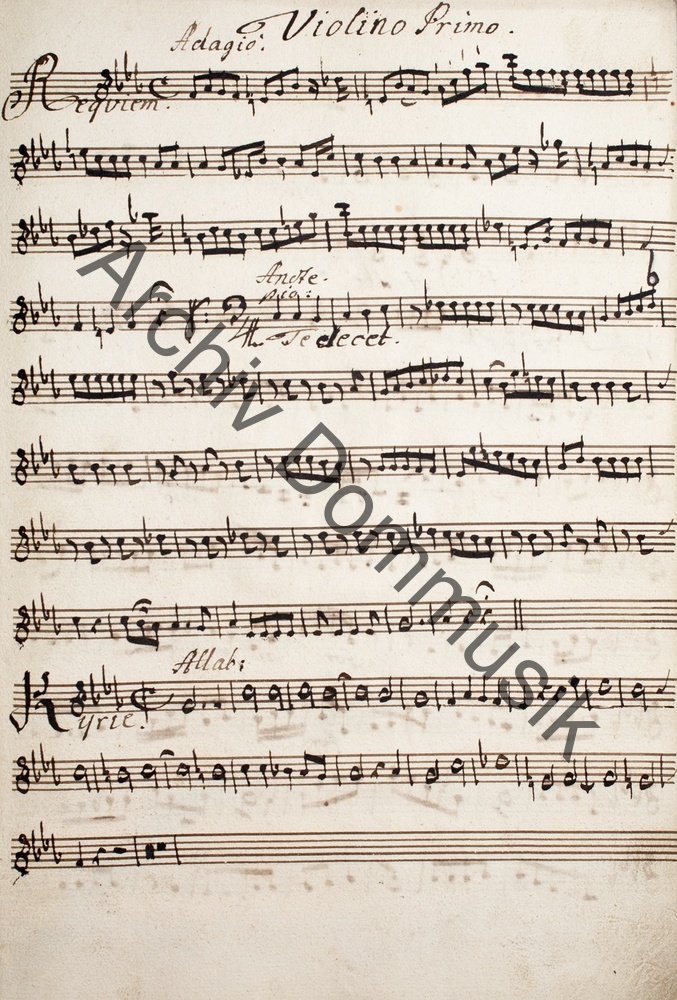 Violino Primo.
Adagio.
Requiem.
Andte.
pia:
Te decet.
Allab:
Kyrie.
Archiv Dommusik